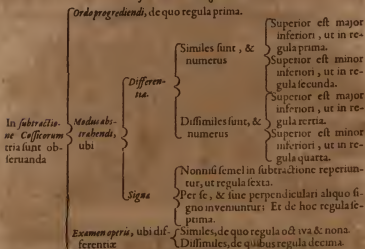 Ordo progrediendi, de quo regula prima.
In subtractio-
ne Coſſicorum
tria ſunt ob-
ſeruanda
Modus abs-
trahendi,
ubi
Differen-
tia.
Similes ſunt, &
numerus
Superior eſt major
inferiori, ut in re-
gula prima.
Superior eſt minor
inferiori, ut in re-
gula ſecunda.
Diſſimiles ſunt, &
numerus
Superior eſt major
inferiori, ut in re-
gula tertia.
Superior eſt minor
inferiori, ut in re-
gula quarta.
Signa
Nonniſi ſemel in ſubtractione reperiun-
tur, ut regula ſexta.
Per ſe, & ſine perpendiculari aliquo ſi-
gno inveniuntur: Et de hoc regula ſe-
ptima.
Examen operis, ubi dif-
ferentiæ
Similes, de quo regula octava & nona.
Diſſimiles, de quibus regula decima.